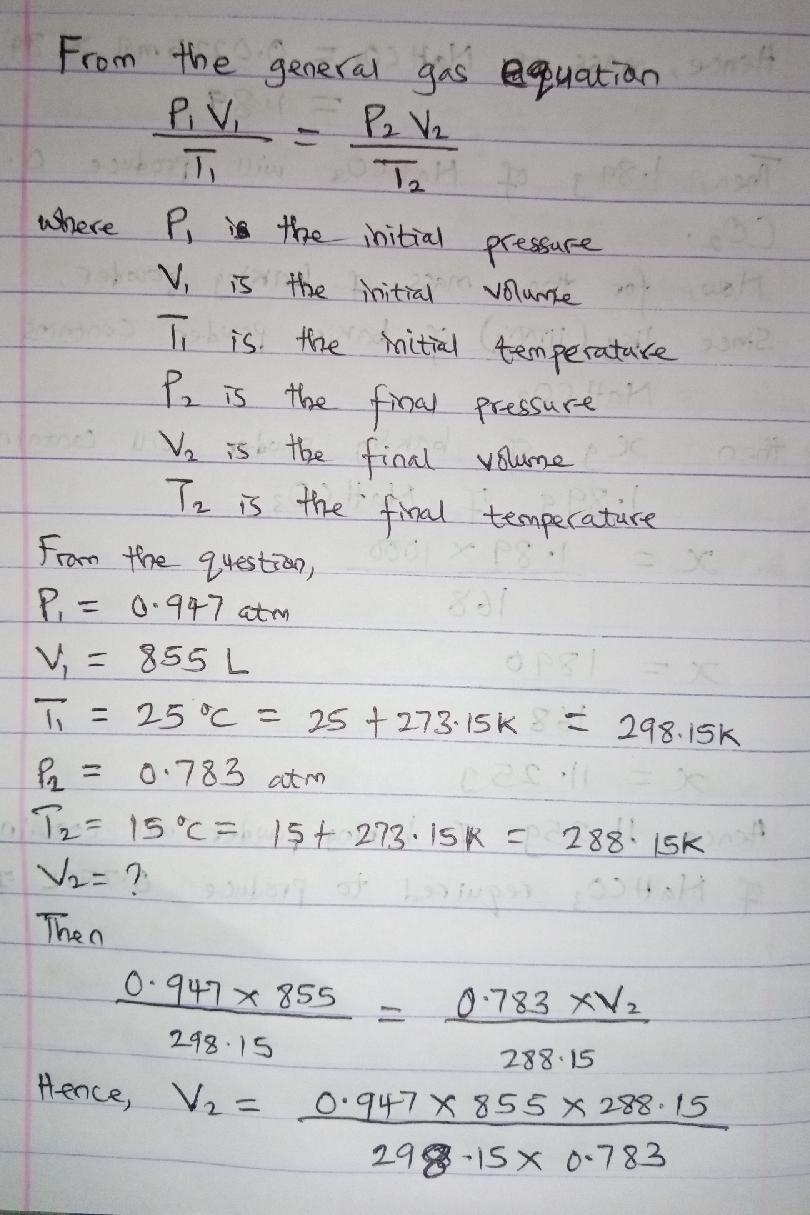 From the general gas equation
P₁ V₁ / T₁ = P₂ V₂ / T₂
where P₁ is the initial pressure
V₁ is the initial volume
T₁ is the initial temperature
P₂ is the final pressure
V₂ is the final volume
T₂ is the final temperature
From the question,
P₁ = 0.947 atm
V₁ = 855 L
T₁ = 25 °C = 25 + 273.15K = 298.15K
P₂ = 0.783 atm
T₂ = 15 °C = 15 + 273.15K = 288.15K
V₂ = ?
Then
0.947 × 855 / 298.15 = 0.783 × V₂ / 288.15
Hence, V₂ = 0.947 × 855 × 288.15 / 298.15 × 0.783